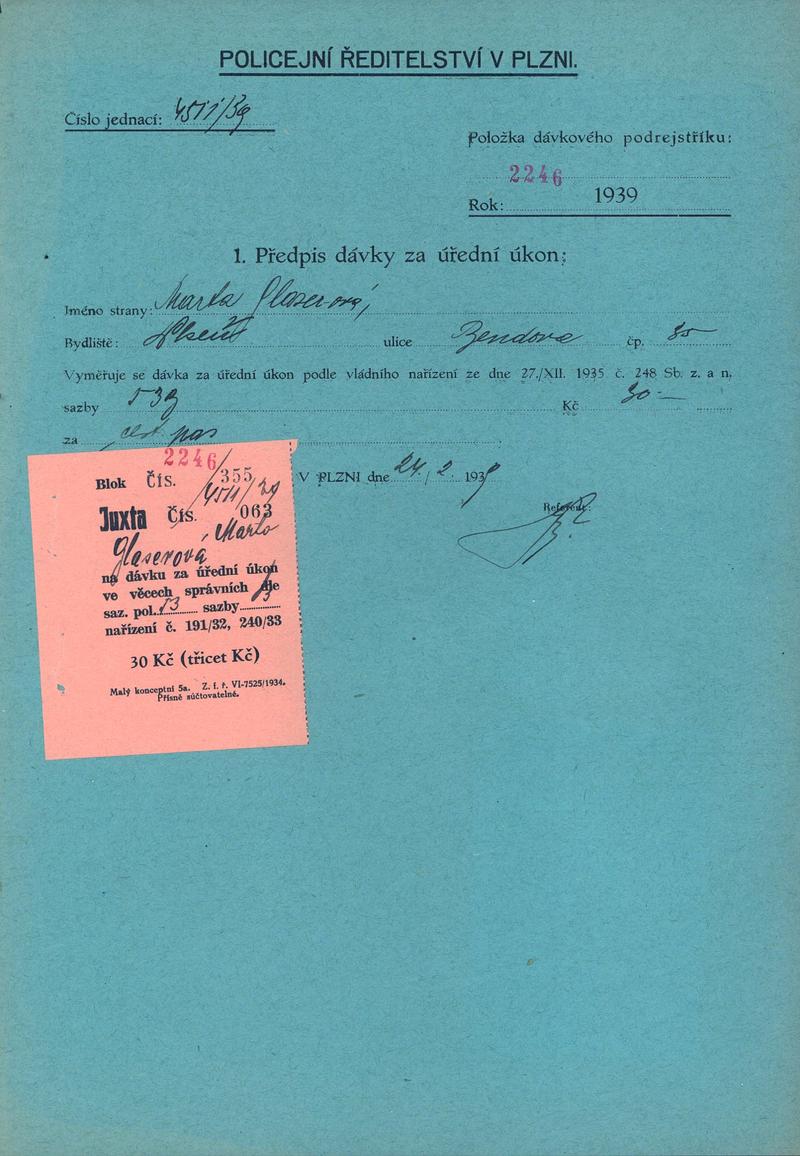 POLICEJNÍ ŘEDITELSTVÍ V PLZNI.
Číslo jednací: 4511/39
Položka dávkového podrejstříku:
2246
Rok: 1939
1. Předpis dávky za úřední úkon:
Jméno strany: Marta Glaserová,
Bydliště: Plzeň ulice Zendova čp.
Vyměřuje se dávka za úřední úkon podle vládního nařízení ze dne 27./XII. 1935 č. 248 Sb. z. a n.
sazby 53g Kč 30.—
za cest. pas
V PLZNI dne 24./2. 1939
Referent:
2246
Blok Čís. 355
4511/39
Juxta Čís. 063
Glaserová, Marta
na dávku za úřední úkon
ve věcech správních dle
saz. pol. 53 sazby
nařízení č. 191/32, 240/33
30 Kč (třicet Kč)
Malý konceptní 5a. Z. f. ř. VI-7525/1934.
Přísně súčtovatelné.